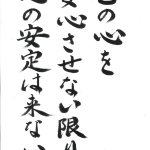 の心を
安心させない限り
の安定は来ない